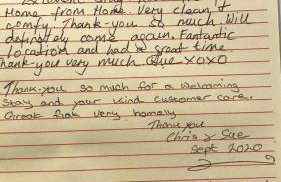 Home from Home. Very clean &
comfy. Thank-you so much. Will
definately come again. Fantastic
location and had a great time
Thank-you very much Sue XOXO
Thank-you so much for a welcoming
stay and your kind customer care.
Great flat very homely
Thank you
Chris & Sue
Sept 2020